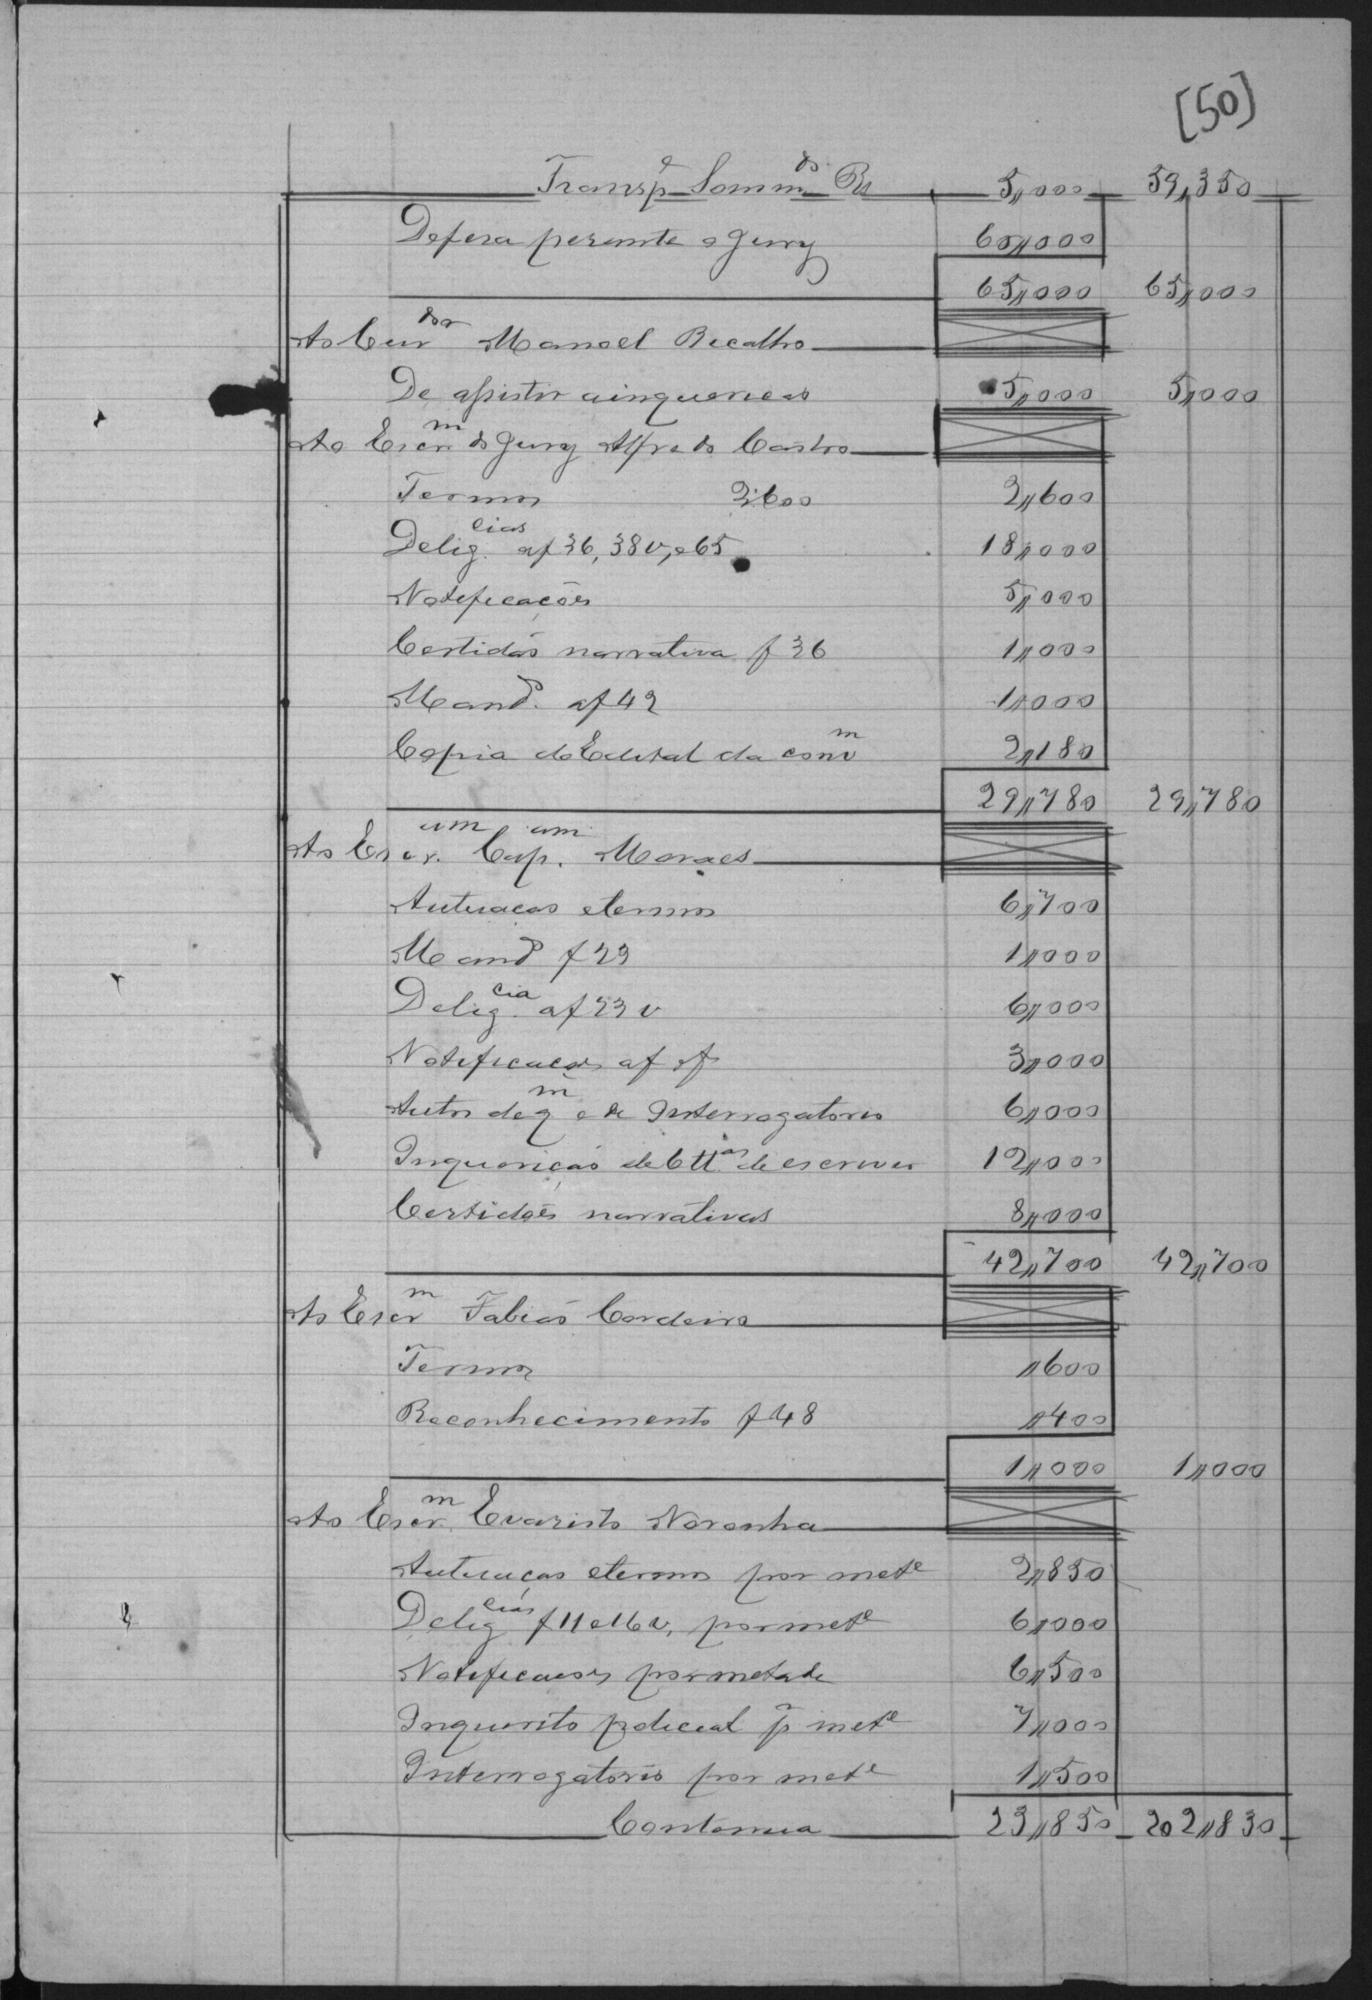 [50]
Transp.e Somm.do Rs 5,,000 59,,350
Defesa perante o Jury 60,,000
65,,000 65,,000
Ao Cur.dor Manoel Bicalho
De assistir a inquericas 5,,000 5,,000
Ao Escr.m do Jury Alfredo Castro
Termos 2600 2,,600
Delig.cias af 36, 38v, e 65 18,,000
Notificações 5,,000
Certidão narrativa f 36 1,,000
Mand.o af 42 1,,000
Copia do Edital da conv.m 2,,180
29,,780 29,,780
Ao Escr.um Cap.um Moraes
Autuacao e termos 6,,700
Mand.o f 23 1,,000
Delig.cia af 23 v 6,,000
Notificacões af af 3,,000
Auto de q.m e de Interrogatorio 6,,000
Inquerição de 6 tt.as de escrever 12,,000
Certidões narrativas 8,,000
42,,700 42,,700
Ao Escr.m Fabião Cordeiro
Termos ,,600
Reconhecimento f 48 ,,400
1,,000 1,,000
Ao Escr.m Evaristo Noronha
Autuaçao e termos por met.e 2,,850
Delig.cias f 11 e 16 v, por met.e 6,,000
Notificacões por metade 6,,500
Inquerito policial p.r met.e 7,,000
Interrogatorio por met.e 1,,500
Continua 23,,850 202,,830